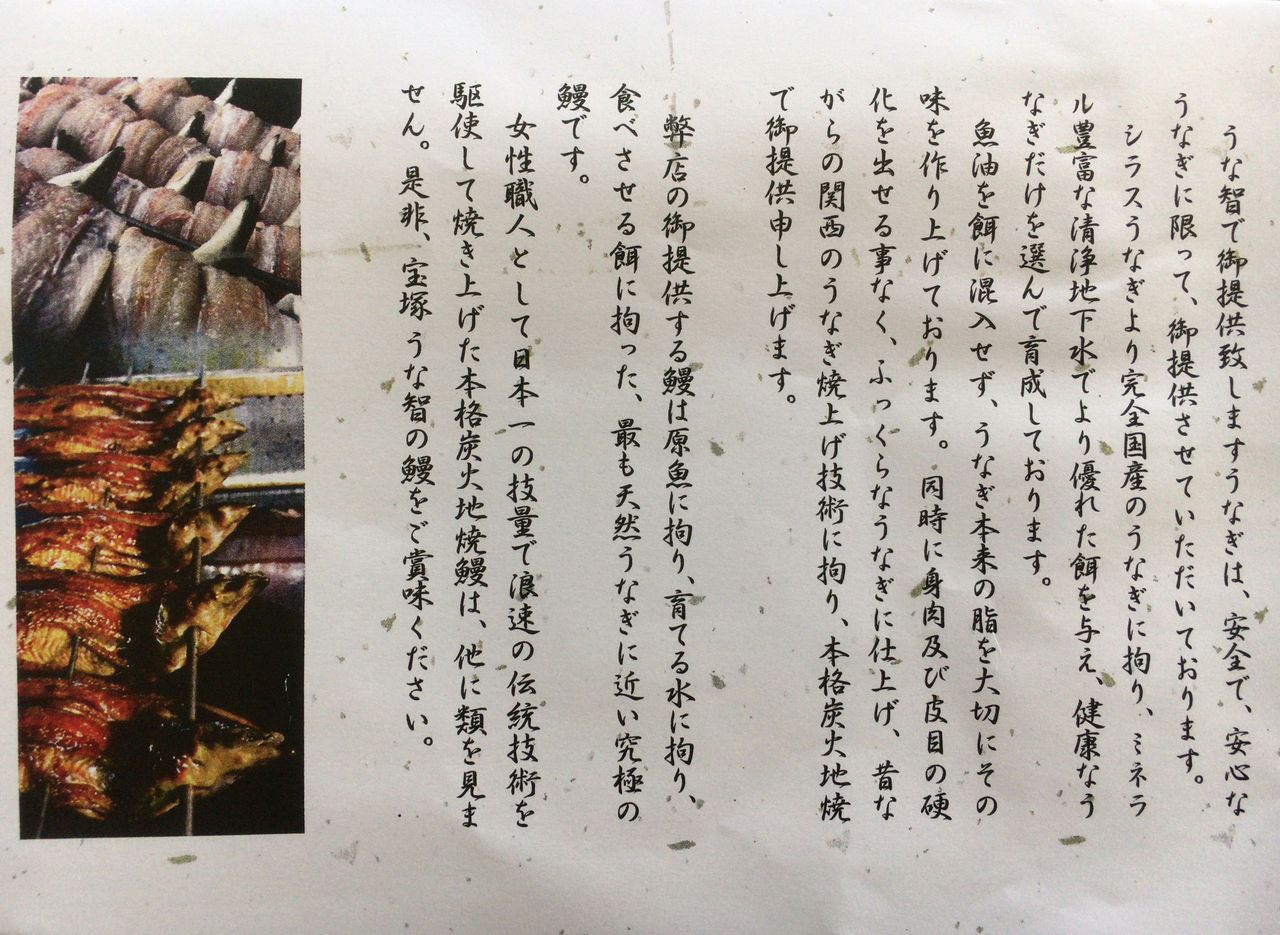 うな智で御提供致しますうなぎは、安全で、安心な
うなぎに限って、御提供させていただいております。
シラスうなぎより完全国産のうなぎに拘り、ミネラ
ル豊富な清浄地下水でより優れた餌を与え、健康なう
なぎだけを選んで育成しております。
魚油を餌に混入せず、うなぎ本来の脂を大切にその
味を作り上げております。同時に身肉及び皮目の硬
化を出せる事なく、ふっくらなうなぎに仕上げ、昔な
がらの関西のうなぎ焼上げ技術に拘り、本格炭火地焼
で御提供申し上げます。
弊店の御提供する鰻は原魚に拘り、育てる水に拘り、
食べさせる餌に拘った、最も天然うなぎに近い究極の
鰻です。
女性職人として日本一の技量で浪速の伝統技術を
駆使して焼き上げた本格炭火地焼鰻は、他に類を見ま
せん。是非、宝塚うな智の鰻をご賞味ください。